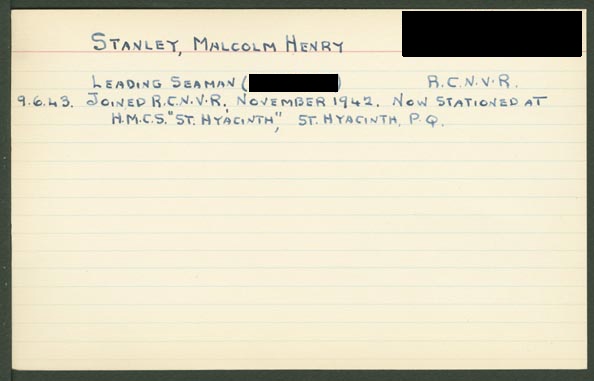 STANLEY, MALCOLM HENRY
LEADING SEAMAN ( ) R.C.N.V.R.
9.6.43. JOINED R.C.N.V.R, NOVEMBER 1942. NOW STATIONED AT
H.M.C.S. "ST. HYACINTH", ST. HYACINTH, P.Q.